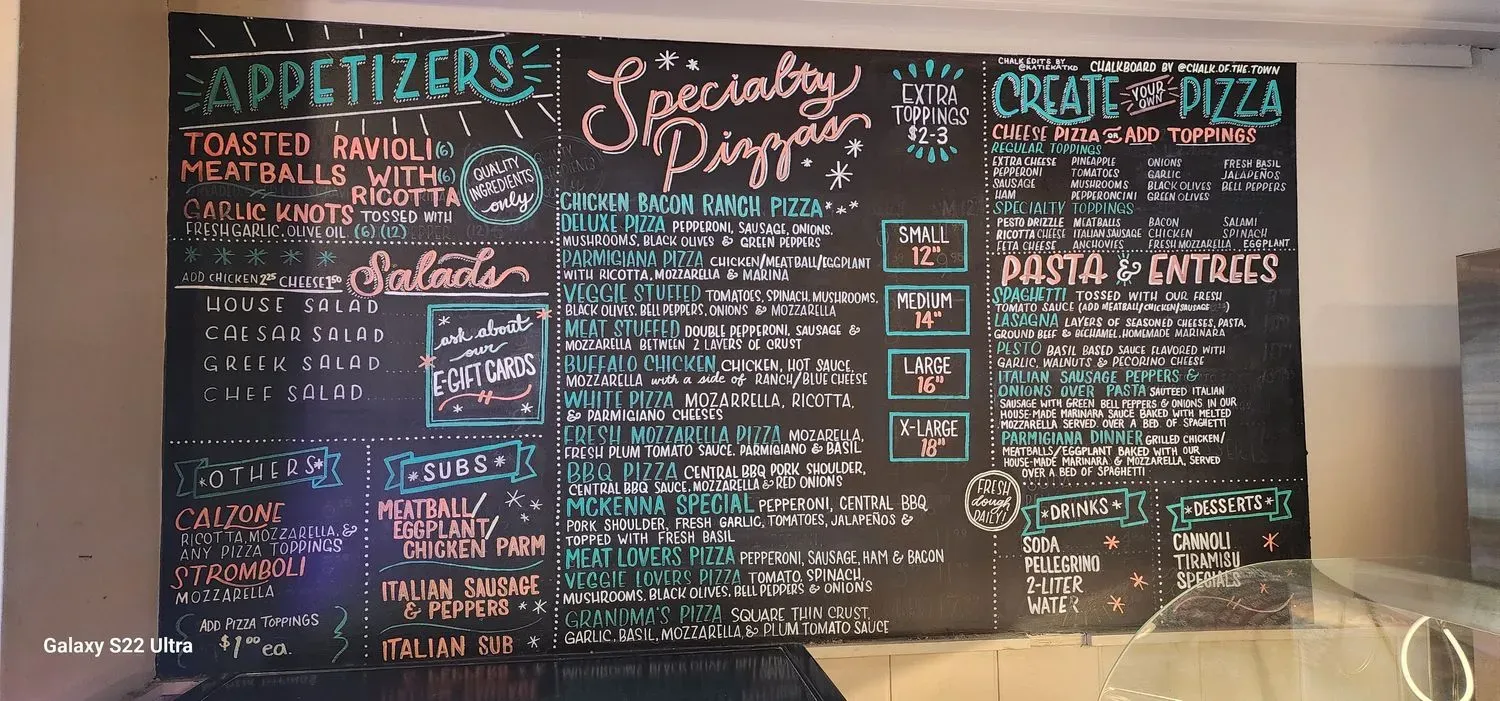 APPETIZERS
TOASTED RAVIOLI (6)
MEATBALLS WITH (6)
RICOTTA
GARLIC KNOTS TOSSED WITH
FRESH GARLIC, OLIVE OIL (6) (12)
QUALITY
INGREDIENTS
only
ADD CHICKEN 2.25 CHEESE 1.50
Salads
HOUSE SALAD
CAESAR SALAD
GREEK SALAD
CHEF SALAD
ask about
our
E-GIFT CARDS
*OTHERS*
CALZONE
RICOTTA, MOZZARELLA, &
ANY PIZZA TOPPINGS
STROMBOLI
MOZZARELLA
ADD PIZZA TOPPINGS
$1.00 ea.
*SUBS*
MEATBALL/
EGGPLANT/
CHICKEN PARM
ITALIAN SAUSAGE
& PEPPERS
ITALIAN SUB
Specialty
Pizzas
EXTRA
TOPPINGS
$2-3
CHICKEN BACON RANCH PIZZA
DELUXE PIZZA PEPPERONI, SAUSAGE, ONIONS.
MUSHROOMS, BLACK OLIVES & GREEN PEPPERS
PARMIGIANA PIZZA CHICKEN/MEATBALL/EGGPLANT
WITH RICOTTA, MOZZARELLA & MARINA
VEGGIE STUFFED TOMATOES, SPINACH, MUSHROOMS.
BLACK OLIVES, BELL PEPPERS, ONIONS & MOZZARELLA
MEAT STUFFED DOUBLE PEPPERONI, SAUSAGE &
MOZZARELLA BETWEEN 2 LAYERS OF CRUST
BUFFALO CHICKEN CHICKEN, HOT SAUCE,
MOZZARELLA with a side of RANCH/BLUE CHEESE
WHITE PIZZA MOZARRELLA, RICOTTA,
& PARMIGIANO CHEESES
FRESH MOZZARELLA PIZZA MOZARELLA,
FRESH PLUM TOMATO SAUCE. PARMIGIANO & BASIL
BBQ PIZZA CENTRAL BBQ PORK SHOULDER,
CENTRAL BBQ SAUCE, MOZZARELLA & RED ONIONS
MCKENNA SPECIAL PEPPERONI, CENTRAL BBQ
PORK SHOULDER, FRESH GARLIC, TOMATOES, JALAPEÑOS &
TOPPED WITH FRESH BASIL
MEAT LOVERS PIZZA PEPPERONI, SAUSAGE, HAM & BACON
VEGGIE LOVERS PIZZA TOMATO, SPINACH,
MUSHROOMS, BLACK OLIVES, BELL PEPPERS & ONIONS
GRANDMA'S PIZZA SQUARE THIN CRUST,
GARLIC, BASIL, MOZZARELLA & PLUM TOMATO SAUCE
SMALL
12"
MEDIUM
14"
LARGE
16"
X-LARGE
18"
FRESH
dough
DAILY!
CHALK EDITS BY
@KATIEKATKO
CHALKBOARD BY @CHALK.OF.THE.TOWN
CREATE YOUR OWN PIZZA
CHEESE PIZZA OR ADD TOPPINGS
REGULAR TOPPINGS
EXTRA CHEESE PINEAPPLE ONIONS FRESH BASIL
PEPPERONI TOMATOES GARLIC JALAPEÑOS
SAUSAGE MUSHROOMS BLACK OLIVES BELL PEPPERS
HAM PEPPERONCINI GREEN OLIVES
SPECIALTY TOPPINGS
PESTO DRIZZLE MEATBALLS BACON SALAMI
RICOTTA CHEESE ITALIAN SAUSAGE CHICKEN SPINACH
FETA CHEESE ANCHOVIES FRESH MOZZARELLA EGGPLANT
PASTA & ENTREES
SPAGHETTI TOSSED WITH OUR FRESH
TOMATO SAUCE (ADD MEATBALL/CHICKEN/SAUSAGE)
LASAGNA LAYERS OF SEASONED CHEESES, PASTA,
GROUND BEEF & BECHAMEL. HOMEMADE MARINARA
PESTO BASIL BASED SAUCE FLAVORED WITH
GARLIC, WALNUTS & PECORINO CHEESE
ITALIAN SAUSAGE PEPPERS &
ONIONS OVER PASTA SAUTEED ITALIAN
SAUSAGE WITH GREEN BELL PEPPERS & ONIONS IN OUR
HOUSE-MADE MARINARA SAUCE BAKED WITH MELTED
MOZZARELLA SERVED OVER A BED OF SPAGHETTI
PARMIGIANA DINNER GRILLED CHICKEN/
MEATBALLS/EGGPLANT BAKED WITH OUR
HOUSE-MADE MARINARA & MOZZARELLA, SERVED
OVER A BED OF SPAGHETTI
*DRINKS*
SODA
PELLEGRINO
2-LITER
WATER
*DESSERTS*
CANNOLI
TIRAMISU
SPECIALS
Galaxy S22 Ultra